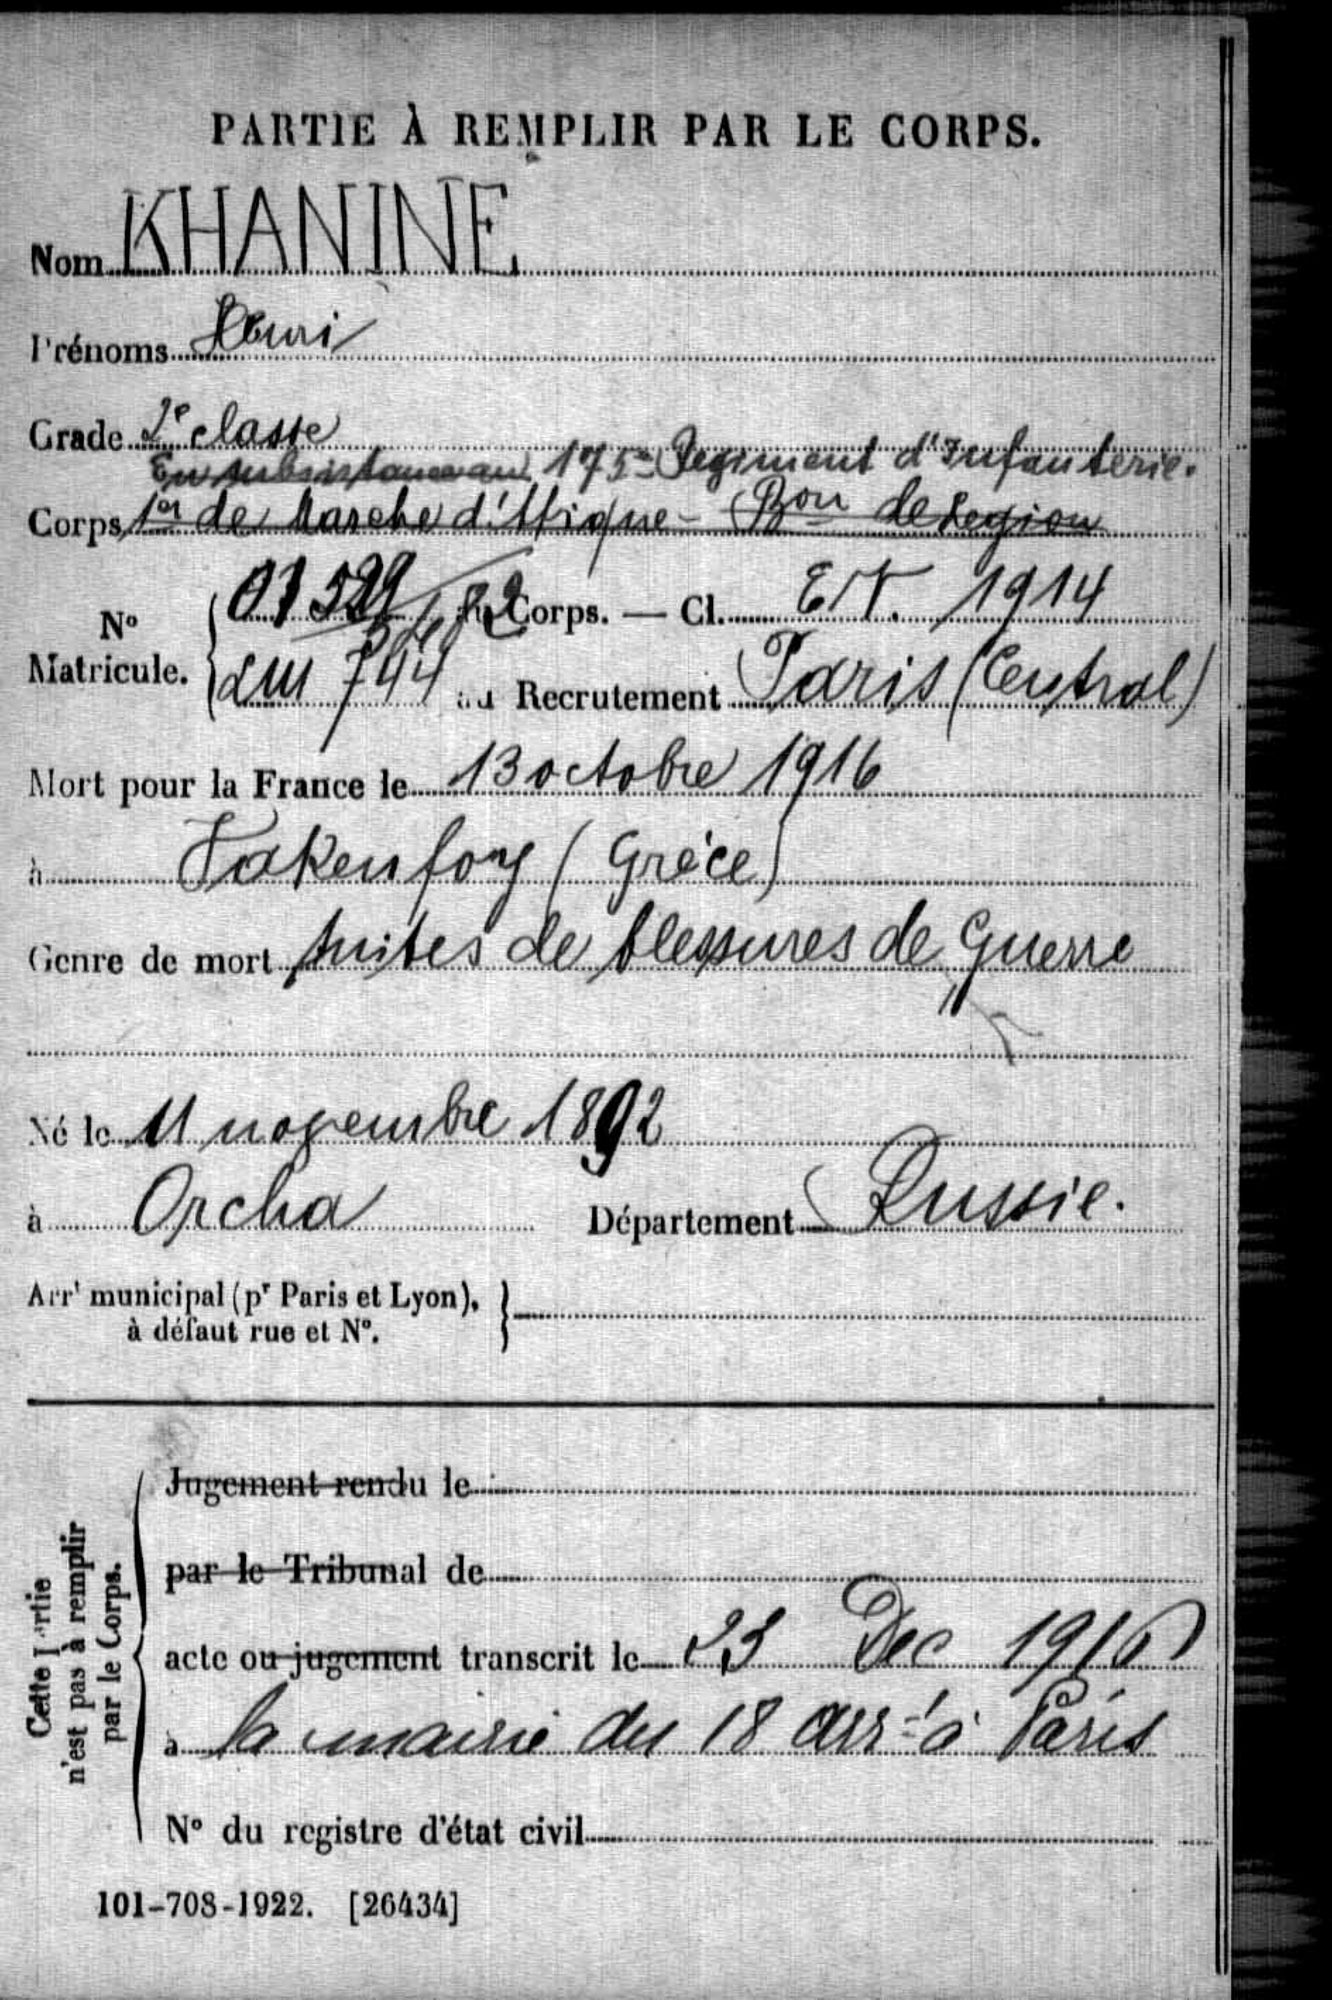 PARTIE À REMPLIR PAR LE CORPS.
Nom KHANINE
Prénoms Henri
Grade 2e classe
En subsistance au 175e Régiment d'Infanterie.
Corps 1er de Marche d'Afrique - Bon de Legion
N° Matricule.
au Corps. — Cl. E.V. 1914
LM 744 au Recrutement Paris (Central)
Mort pour la France le 13 octobre 1916
à (Grèce)
Genre de mort suites de blessures de Guerre
Né le 11 novembre 1892
à Orcha Département Russie.
Arrt municipal (pr Paris et Lyon),
à défaut rue et N°.
Cette Partie
n'est pas à remplir
par le Corps.
Jugement rendu le
par le Tribunal de
acte ou jugement transcrit le 23 Dec 1916
à la mairie du 18 arrt à Paris
N° du registre d'état civil
101-708-1922. [26434]